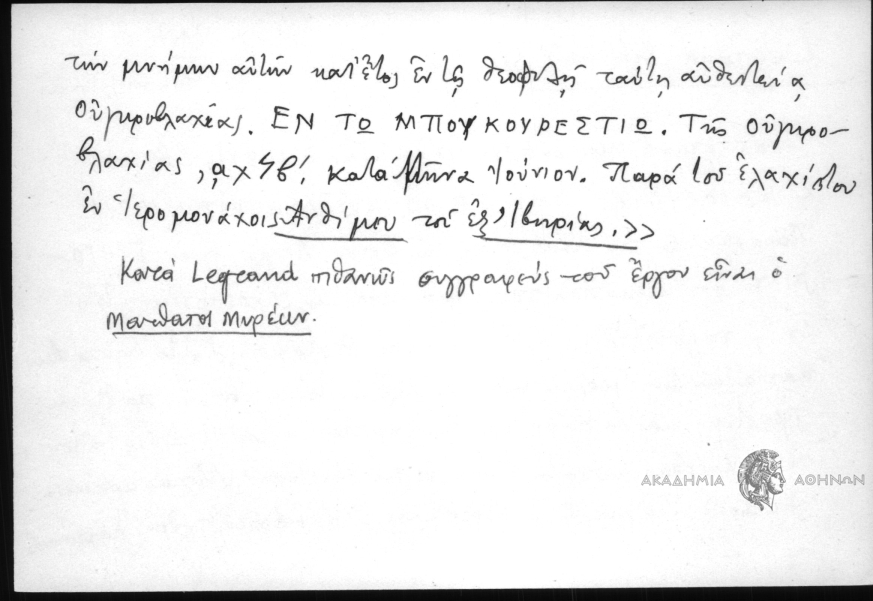 τὴν μνήμην αὐτῶν κατ' ἔτος ἐν τῇ θεοφιλῇ ταύτῃ αὐθεντείᾳ
Οὑγγροβλαχίας. ΕΝ ΤΩ ΜΠΟΥΚΟΥΡΕΣΤΙΩ. Τῆς Οὑγγρο-
βλαχίας, ͵αχϟβ΄. Κατὰ Μῆνα Ἰούνιον. Παρὰ τοῦ ἐλαχίστου
ἐν Ἱερομονάχοις Ἀνθίμου τοῦ ἐξ Ἰβηρίας.>>
Κατὰ Legrand πιθανῶς συγγραφεὺς τοῦ ἔργου εἶναι ὁ
Μυρέων.
ΑΚΑΔΗΜΙΑ ΑΘΗΝΩΝ